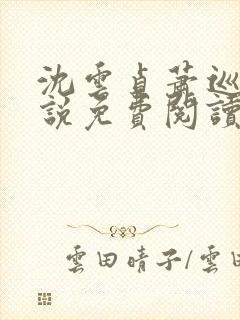 沈雲貞蕭巡
說免費閱讀
雲田晴子/雲田